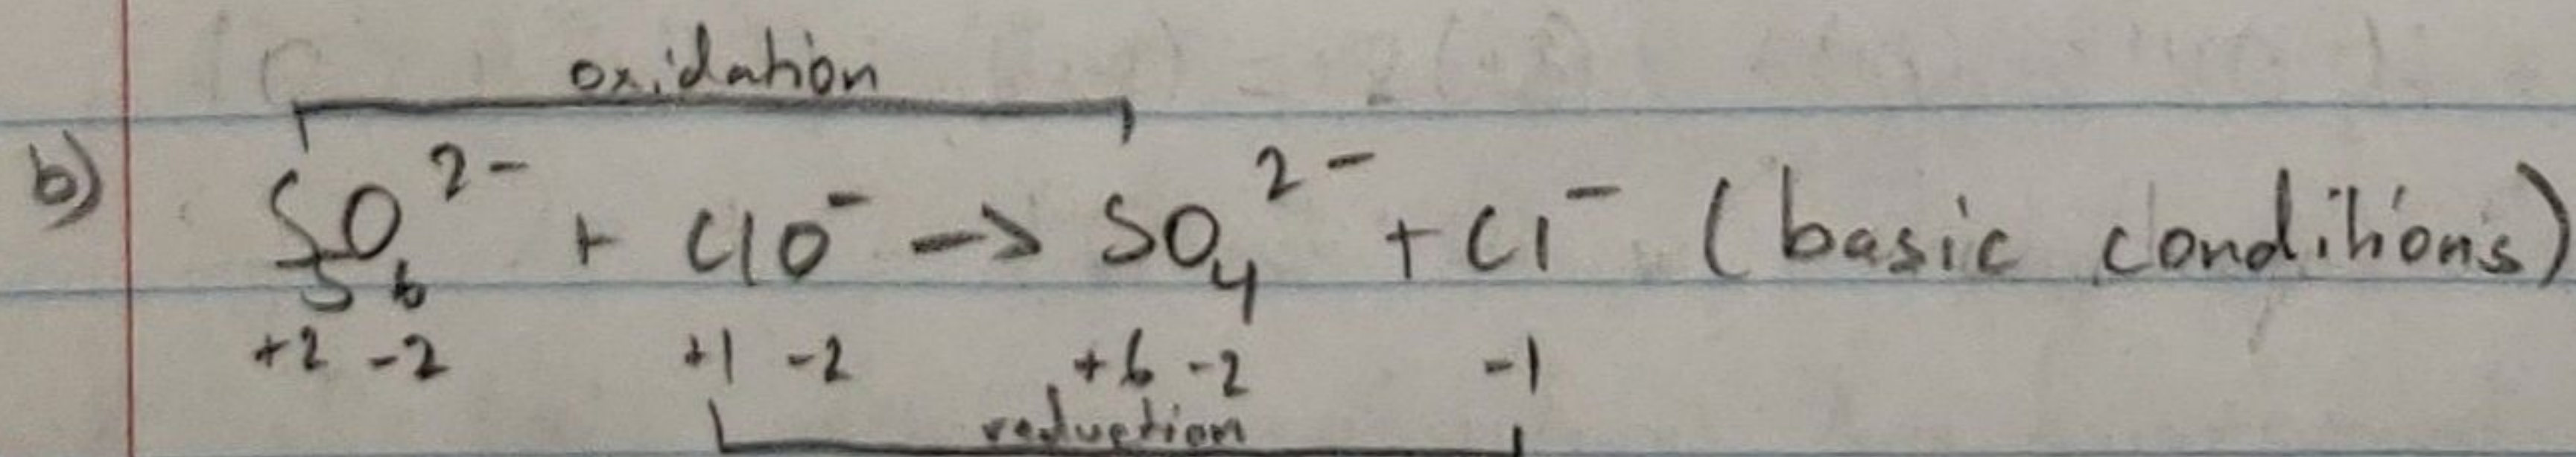 oxidation
b) S₅O₆²⁻ + ClO⁻ → SO₄²⁻ + Cl⁻ (basic conditions)
+2 -2 +1 -2 +6 -2 -1
reduction